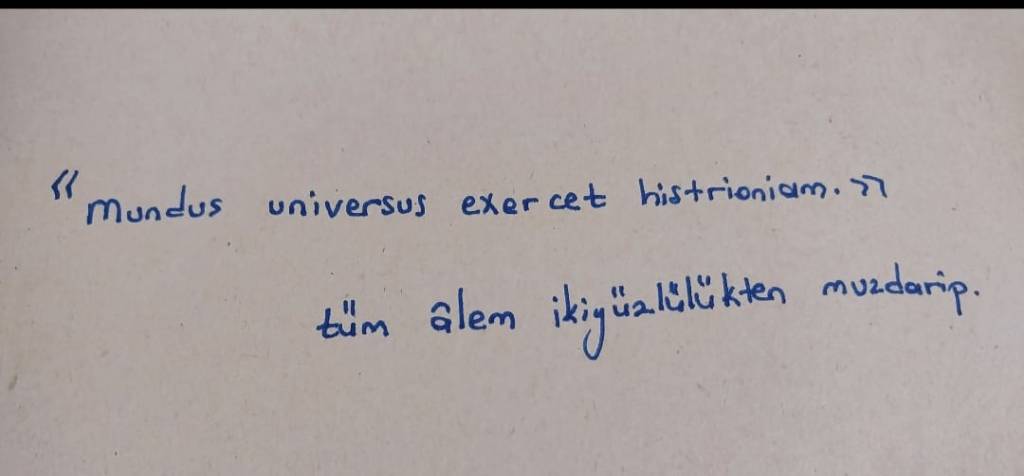 «mundus universus exercet histrioniam.»
tüm âlem ikiyüzlülükten muzdarip.